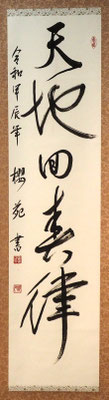 天地回春律
令和甲辰年 櫻苑書